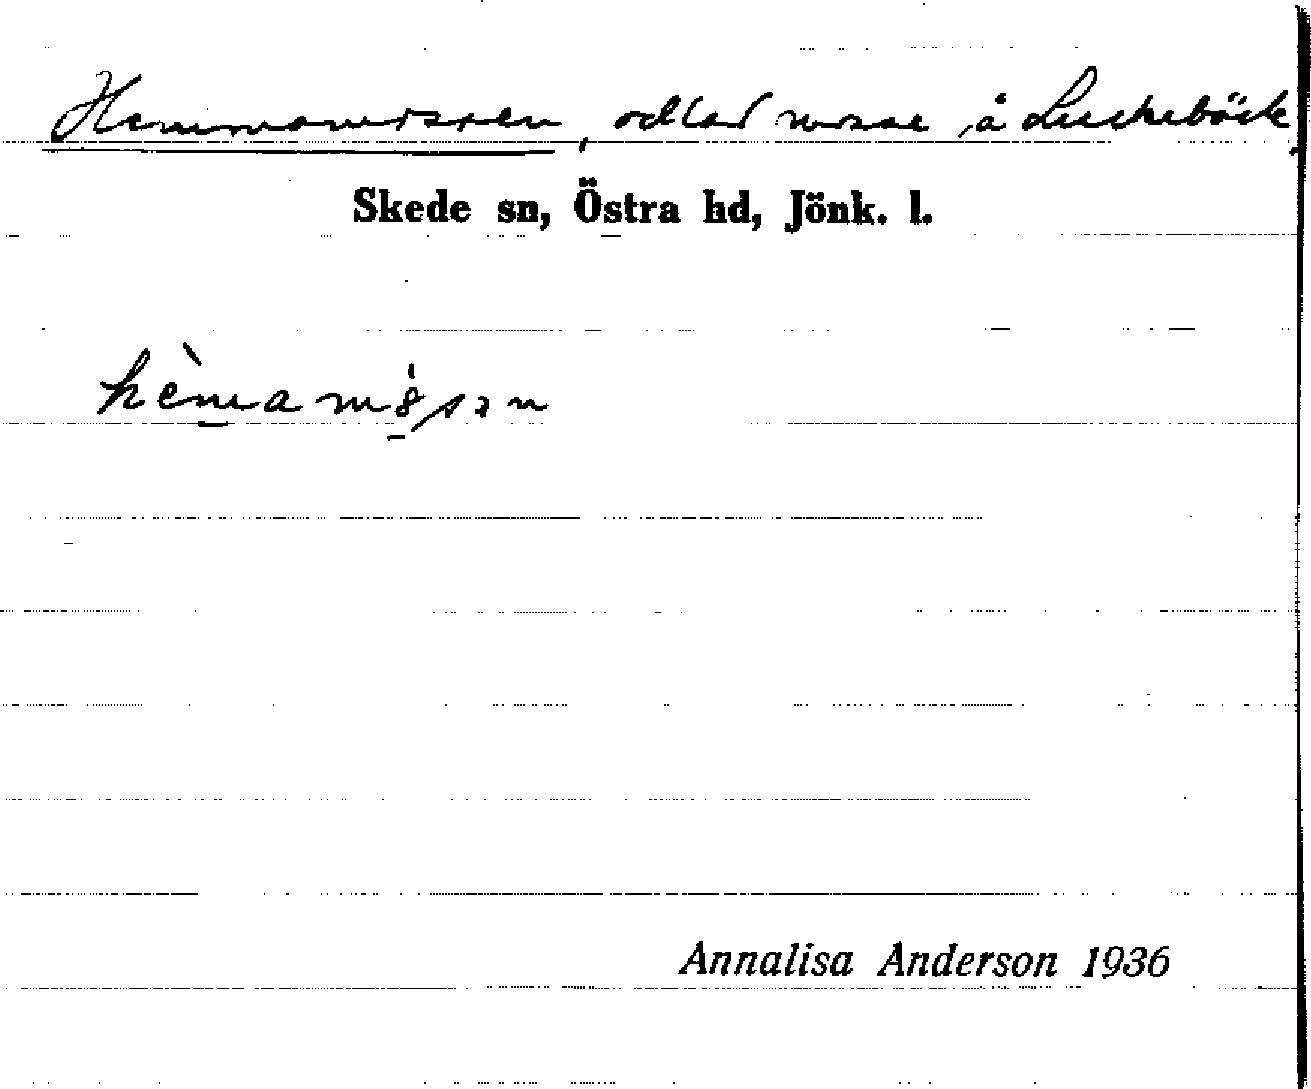 Hemmamossen, odlad mosse å Luckebäck.
Skede sn, Östra hd, Jönk. l.
Annalisa Anderson 1936